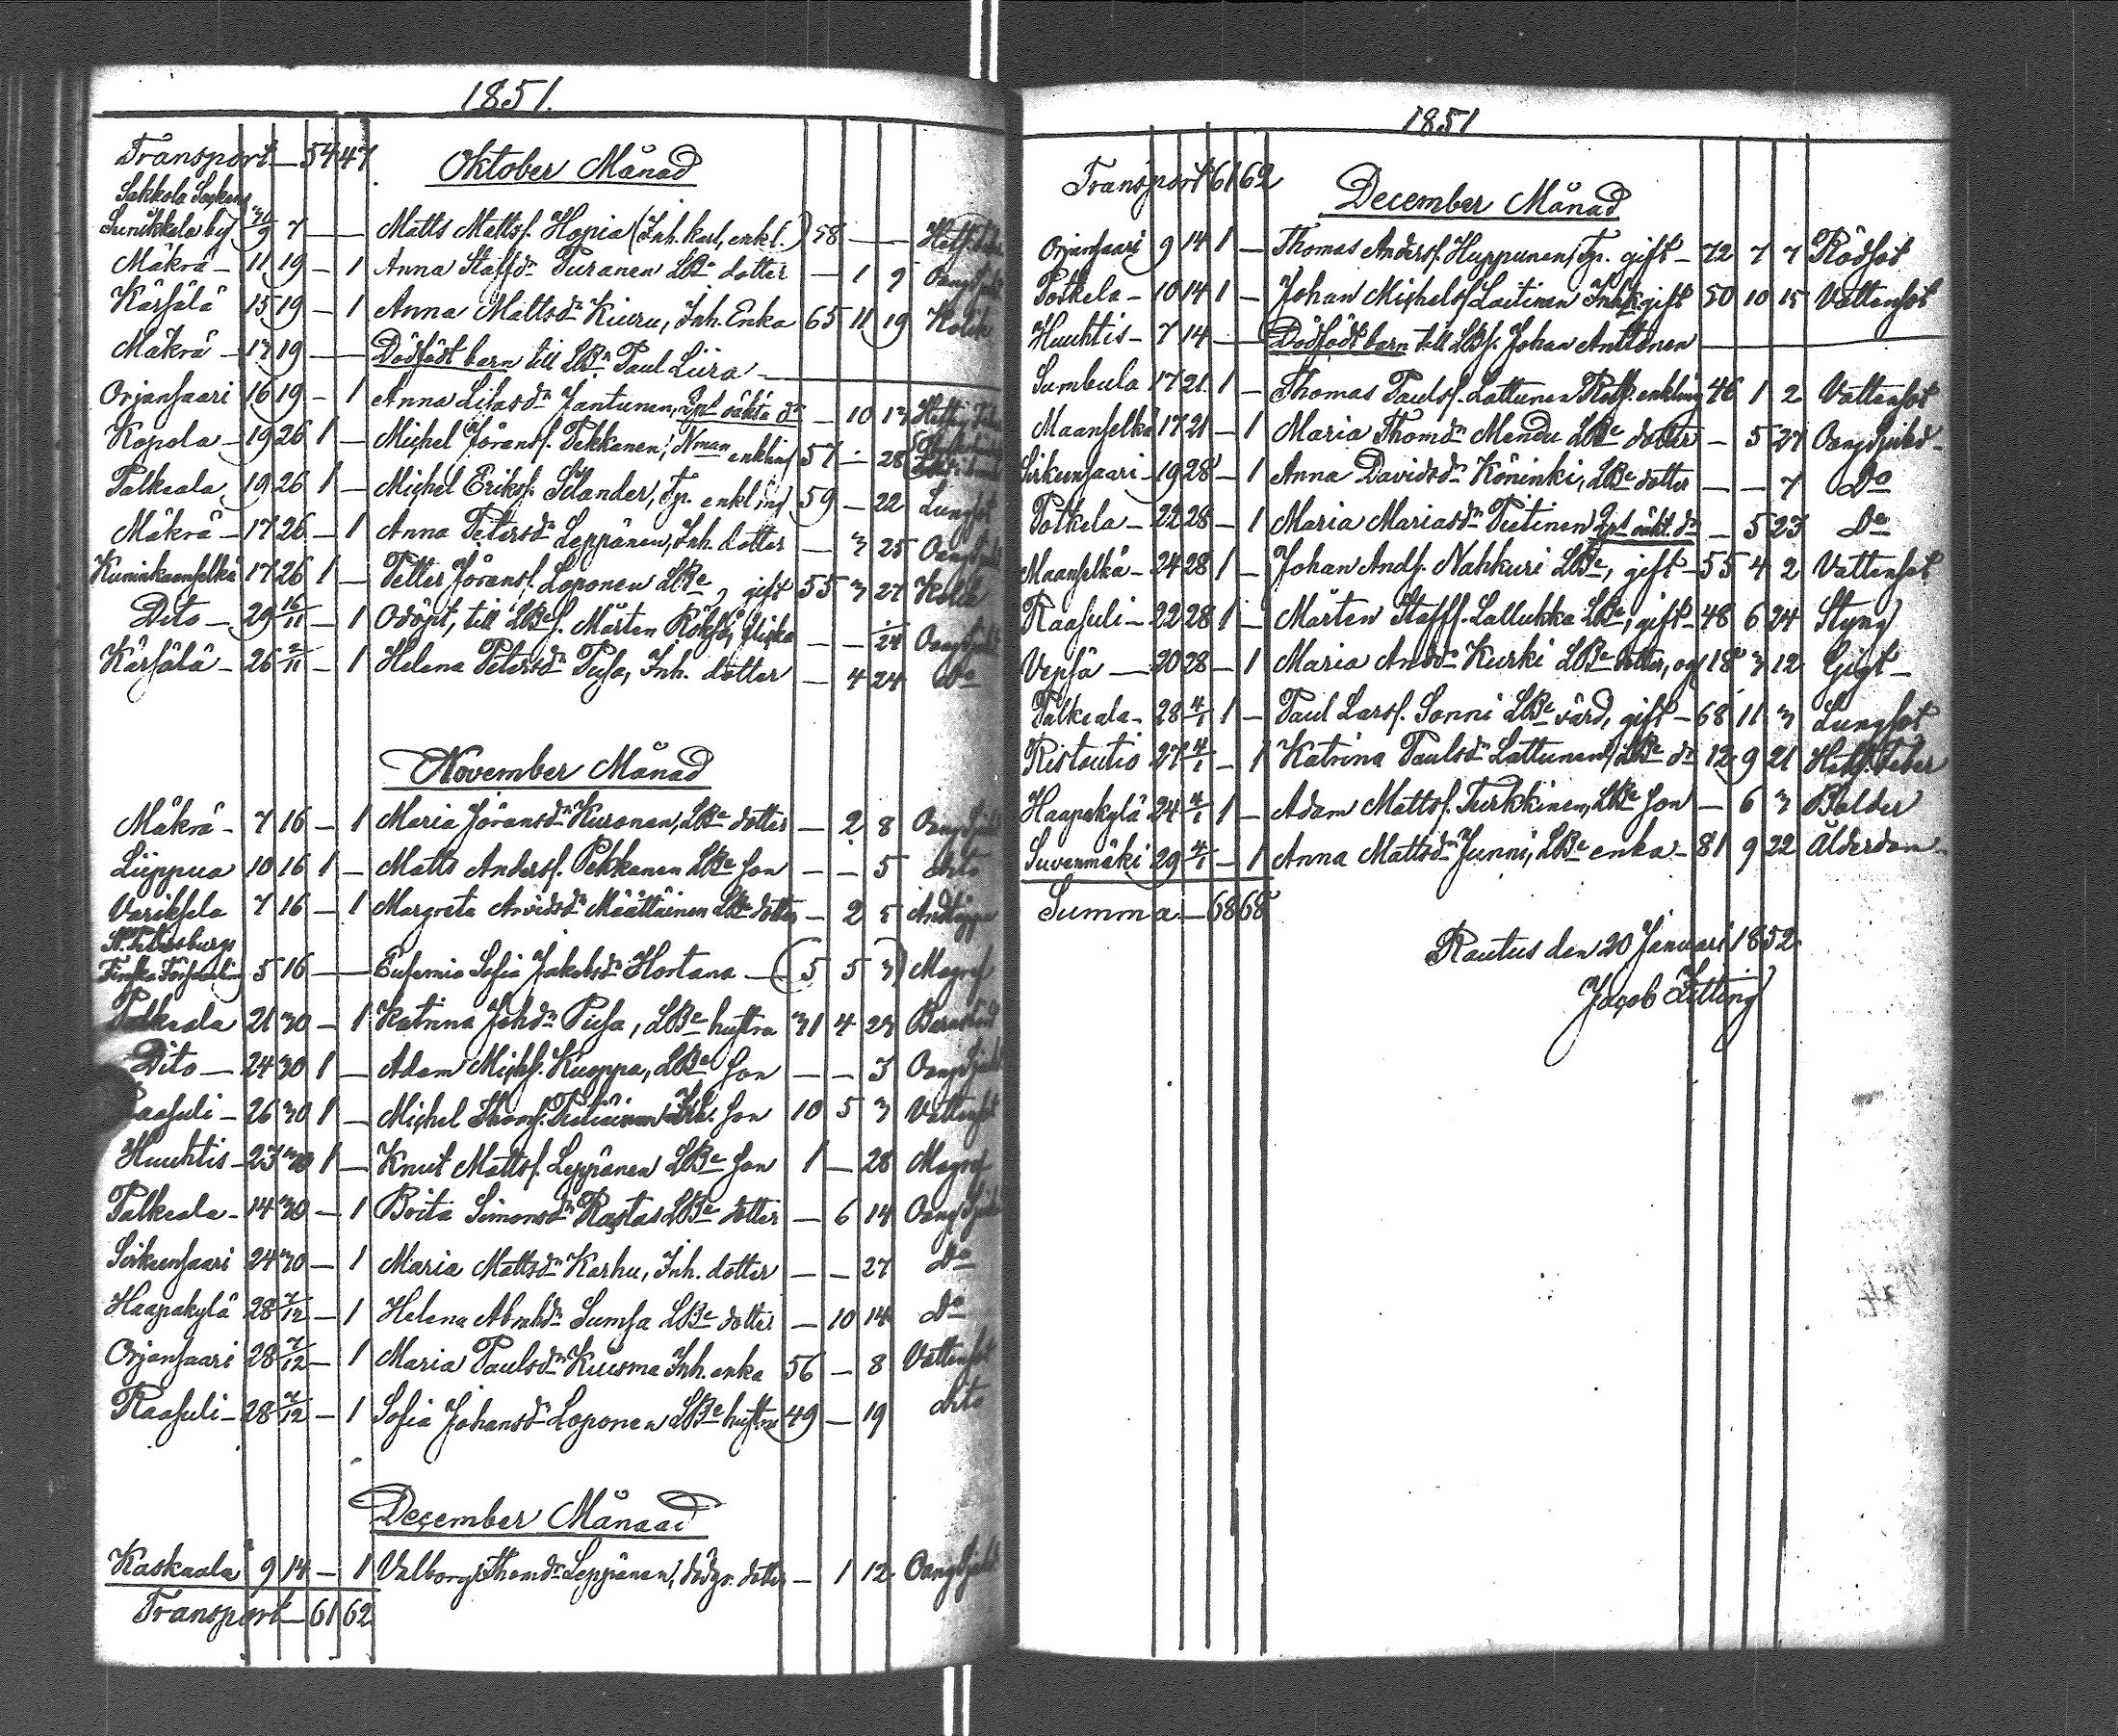 1851.
Transport — 54 47
Oktober Månad
Sakkola Sockens
Sunikkala by 30/9 7 — — Matts Mattss. Hopia (Inh. karl, enkl.) 58 — —
Mäkrä — 11 19 — 1 Anna Staffsdr Puranen LBe dotter — 1 9
Kärsälä 15 19 — 1 Anna Mattsdr Kiuru, Inh. Enka 65 11 19 Kolik
Mäkrä — 17 19 — — Dödfödt barn till LBn Paul Liira —
Orjansaari 16 19 — 1 Anna Lisasdr Jantunen, Qpt oäkta dr — 10 17
Kopola — 19 26 1 — Michel Göranss. Pekkanen, Nman enkling 57 — 28
Palkeala 19 26 1 — Michel Erikss. Selander, Tp. enkling 59 — 22 Lungsot
Mäkrä — 17 26 — 1 Anna Petersdr Leppänen, Inh. dotter — 3 25
Kuninkaanselkä 17 26 1 — Petter Göranss. Loponen LBe, gift 55 3 27 Kolik
Dito — 29 16/11 — 1 Odöpt, till LBes. Mårten Röksä, flicka — — 24
Kärsälä — 26 2/11 — 1 Helena Petersdr Pusa, Inh. dotter — 4 24 Do
November Månad
Mäkrä — 7 16 — 1 Maria Göransdr Kuronen, LBe dotter — 2 8
Liippua 10 16 1 — Matts Anderss. Pekkanen LBe son — — 5 dito
Variksela 7 16 — 1 Margreta Arvidsdr Määttäinen LBe dotter — 2 5
St. Petersburgs
Finska Församling 5 16 — — Eufemia Sofia Jakobsdr Hostana — (5 5 3) Magref
Palkeala 21 30 — 1 Katrina Johdr Pusa, LBe hustru 31 4 23
Dito — 24 30 1 — Adam Michs. Kuoppa, LBe son — — 3
Raasuli — 26 30 1 — Michel Thoms. son 10 5 3 Vattensot
Huuhtis — 23 30 1 — Knut Mattss. Leppänen LBe son 1 — 28 Magref
Palkeala — 14 30 — 1 Brita Simonsdr Rastas LBe dotter — 6 14
Sirkeensaari 24 30 — 1 Maria Mattsdr Karhu, Inh. dotter — — 27 Do
Haapakylä 28 7/12 — 1 Helena Abrahdr Sumsa LBe dotter — 10 14 Do
Orjansaari 28 7/12 — 1 Maria Paulsdr Kuisma Inh. enka 56 — 8 Vattensot
Raasuli — 28 7/12 — 1 Sofia Johansdr Loponen LBe hustru 49 — 19 dito
December Månad
Kaskaala 9 14 — 1 Valborg Thomdr Leppänen, dotter — 1 12
Transport — 61 62
1851
Transport 61 62
December Månad
Orjansaari 9 14 1 — Thomas Anderss. Huppunen, Tp. gift — 72 7 7 Rödsot
Potkela — 10 14 1 — Johan Michelss. Laitinen Inh. gift 50 10 15 Vattensot
Huuhtis — 7 14 — — Dödfödt barn till LBs. Johan Anttonen —
Sumbula 17 21 1 — Thomas Paulss. Lattunen enkling 46 1 2 Vattensot
Maanselkä 17 21 — 1 Maria Thomdr Mendu LBe dotter — 5 27
Sirkeensaari — 19 28 — 1 Anna Davidsdr Köninki, LBe dotter — — 7 Do
Potkela — 22 28 — 1 Maria Mariasdr Pietinen Qpt oäkt. dr — 5 23 Do
Maanselkä — 24 28 1 — Johan Ands. Nahkuri LBe, gift — 55 4 2 Vattensot
Raasuli — 22 28 1 — Mårten Staffs. Lallukka LBe, gift — 48 6 24 Styng
Vepsä — 20 28 — 1 Maria Andsdr Kurki LBe dotter, og 18 3 12 Gigt —
Palkeala — 28 4/1 1 — Paul Larss. Sonni LBe värd, gift — 68 11 3 Lungsot
Ristoutio 27 4/1 — 1 Katrina Paulsdr Lattunen, LBe dr 12 9 21 Hets. Feber
Haapakylä 24 4/1 1 — Adam Mattss. Turkkinen, LBe son — 6 3 Bolder
Suvenmäki 29 4/1 — 1 Anna Mattsdr Junni, LBe enka — 81 9 22 Ålderdom
Summa — 68 68
Rautus den 20 Januari 1852.
Jacob Zitting